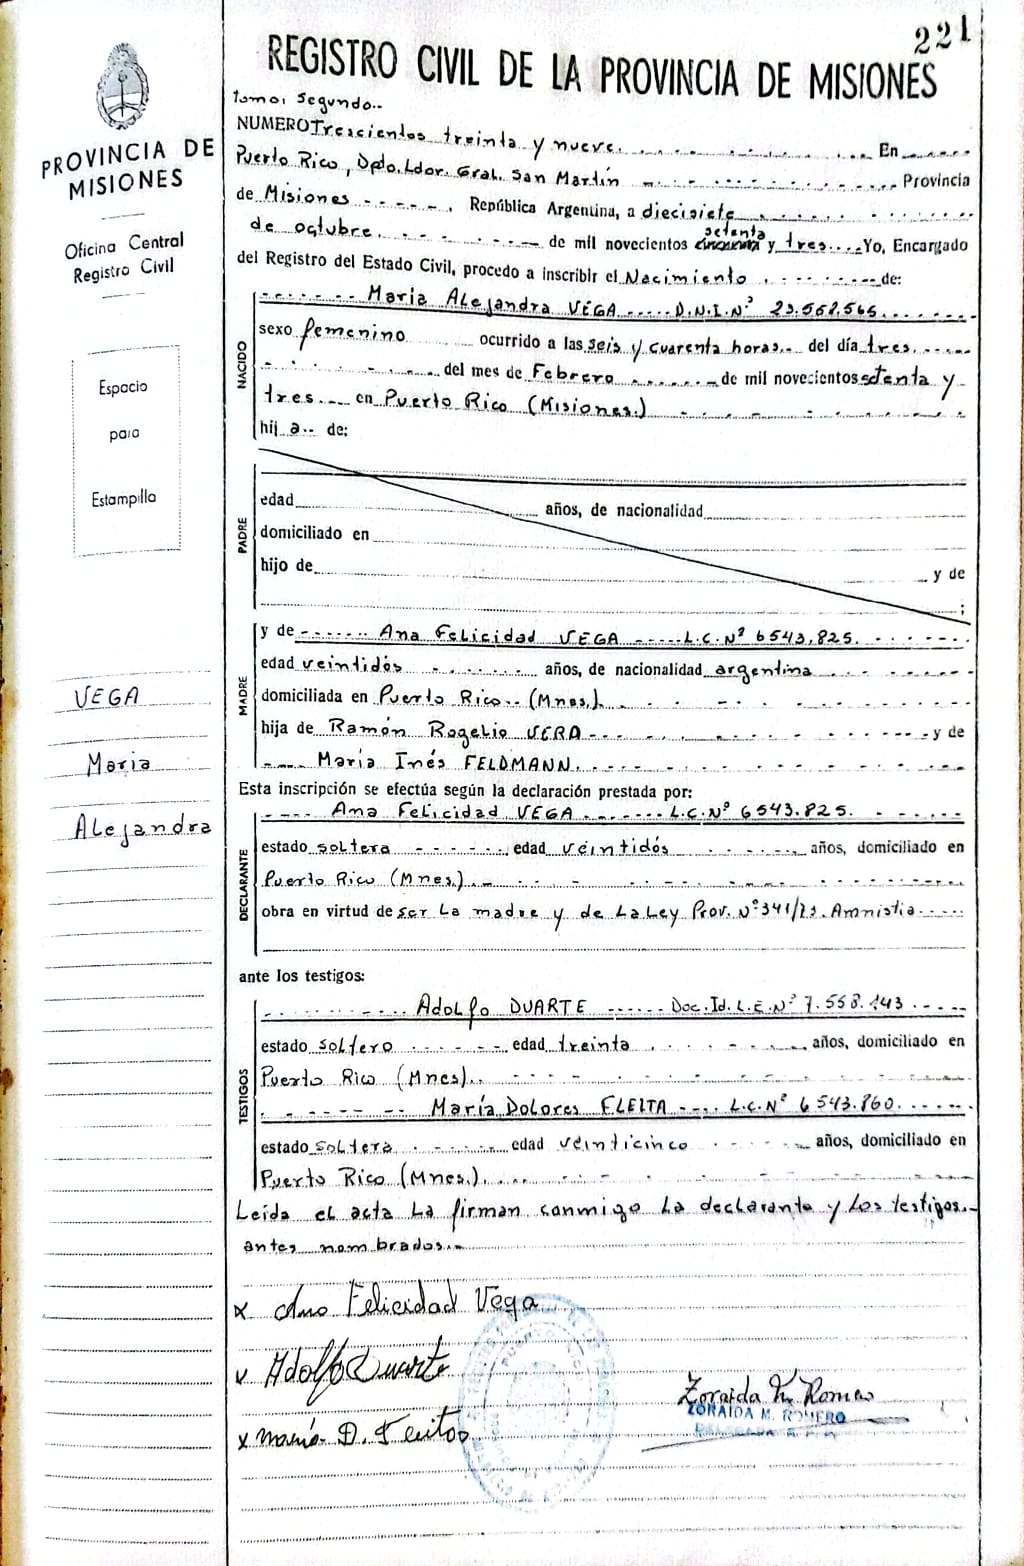 221
REGISTRO CIVIL DE LA PROVINCIA DE MISIONES
PROVINCIA DE
MISIONES
Oficina Central
Registro Civil
Espacio
para
Estampilla
VEGA
Maria
Alejandra
Tomo: Segundo..
NUMERO Trescientos treinta y nueve. En
Puerto Rico, Dpto. Ldor. Gral. San Martín Provincia
de Misiones República Argentina, a diecisiete
de octubre. de mil novecientos setenta y tres. Yo, Encargado
del Registro del Estado Civil, procedo a inscribir el Nacimiento de:
NACIDO
Maria Alejandra VEGA D.N.I.Nº 23.568.565
sexo femenino ocurrido a las seis y cuarenta horas.. del día tres.
del mes de Febrero de mil novecientos setenta y
tres. en Puerto Rico (Misiones.)
hij a.. de:
PADRE
edad años, de nacionalidad
domiciliado en
hijo de y de
;
MADRE
y de Ana Felicidad VEGA L.C.Nº 6543.825.
edad veintidós años, de nacionalidad argentina
domiciliada en Puerto Rico.. (Mnes.).
hija de Ramón Rogelio VERA y de
María Inés FELDMANN.
Esta inscripción se efectúa según la declaración prestada por:
DECLARANTE
Ana Felicidad VEGA L.C.Nº 6543.825.
estado soltera edad veintidós años, domiciliado en
Puerto Rico (Mnes.).
obra en virtud de ser la madre y de la Ley Prov. Nº 341/73. Amnistia.
ante los testigos:
TESTIGOS
Adolfo DUARTE Doc. Id. L.E.Nº 7.558.143
estado soltero edad treinta años, domiciliado en
Puerto Rico (Mnes).
María Dolores L.C.Nº 6543.860.
estado soltera edad veinticinco años, domiciliado en
Puerto Rico (Mnes.).
Leída el acta la firman conmigo la declarante y los testigos.-
antes nombrados.-
x Ana Felicidad Vega
x Adolfo Duarte
x María D.
Zoraida M. Romero
ZORAIDA M. ROMERO